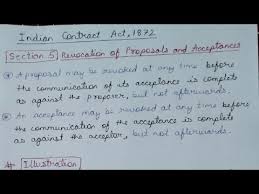 Indian Contract Act, 1872
Section 5 Revocation of Proposals and Acceptances
A proposal may be revoked at any time before
the communication of its acceptance is complete
as against the proposer, but not afterwards.
An acceptance may be revoked at any time before
the communication of the acceptance is complete
as against the acceptor, but not afterwards.
# Illustration